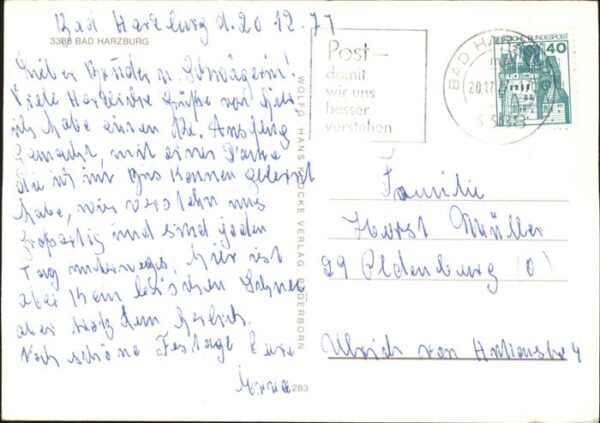 Bad Harzburg d. 20 12. 77
3388 BAD HARZBURG
Lieber Bruder u. Schwägerin!
Viele Herzliche Grüße von hier,
ich habe einen Kl. Ausflug
Gemacht, mit einer Dame
die ich im Gelernt
habe, wir verstehn uns
Großartig und sind jeden
Tag unterwegs, hier ist
aber Kein bischen Schnee
aber trotzdem herlich.
Noch schöne Festage Eure
Erna
WOLFG. HANS KLOCKE VERLAG, PADERBORN
283
Post–
damit
wir uns
besser
verstehen
BAD HARZ
20.12.77
3388
DEUTSCHE BUNDESPOST
40
Familie
Horst Müller
29 Oldenburg (O)
Ulrich von 4